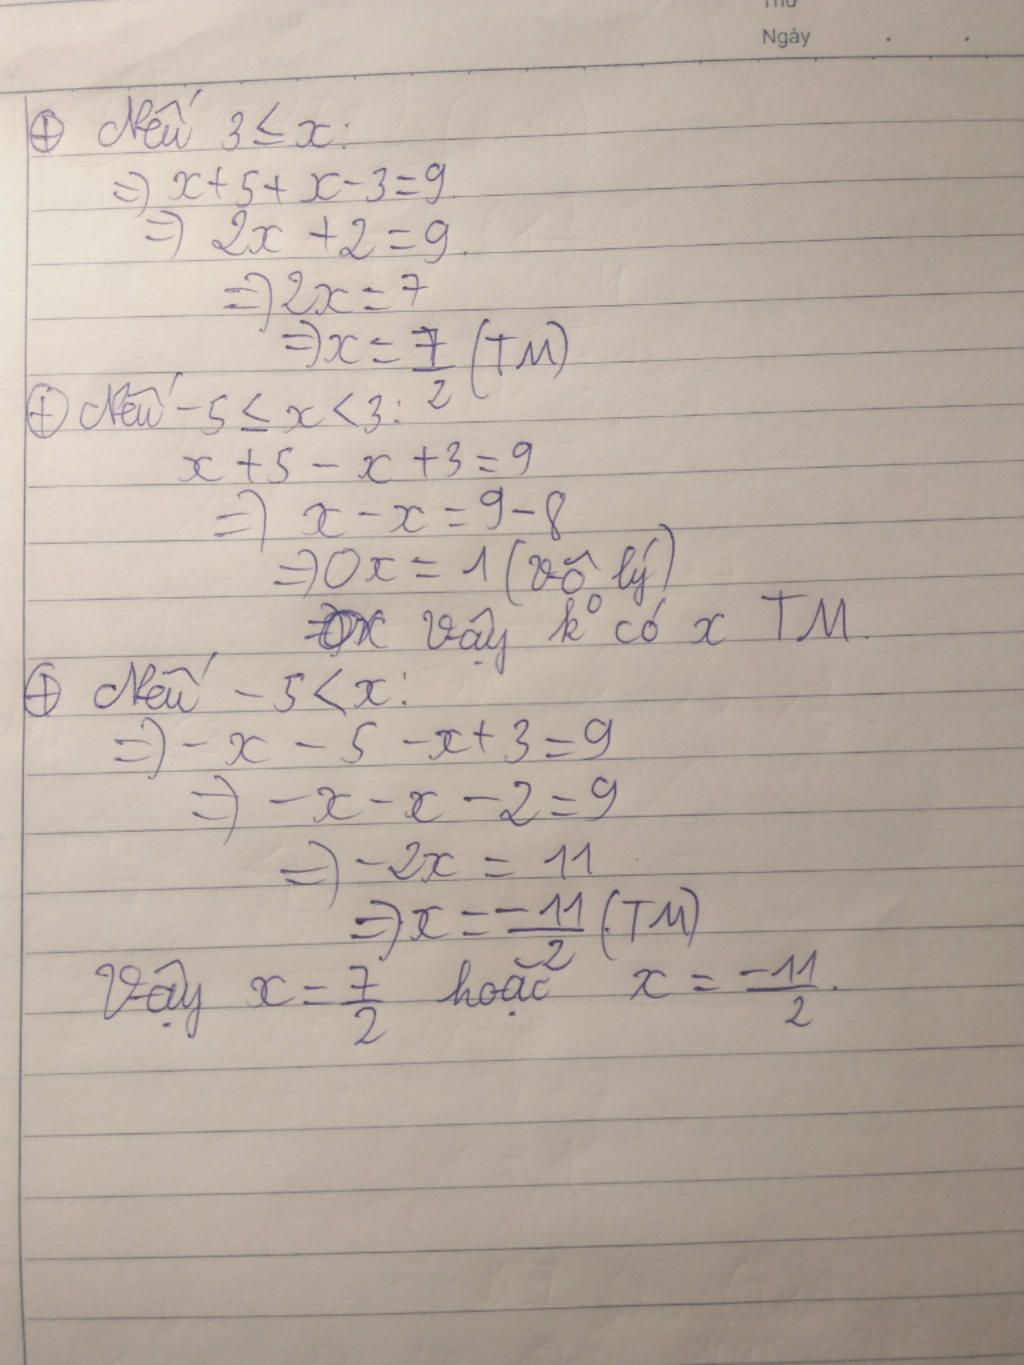 Thứ
Ngày . .
⊕ Nếu 3 ≤ x:
=> x+5+x-3=9.
=> 2x +2=9.
=> 2x=7
=> x=7/2 (TM)
⊕ Nếu -5 ≤ x < 3:
x+5-x+3=9
=> x-x=9-8
=> 0x=1 (vô lý)
Vậy k° có x TM.
⊕ Nếu -5 < x:
=> -x-5-x+3=9
=> -x-x-2=9
=> -2x = 11
=> x=-11/2 (TM)
Vậy x=7/2 hoặc x=-11/2.